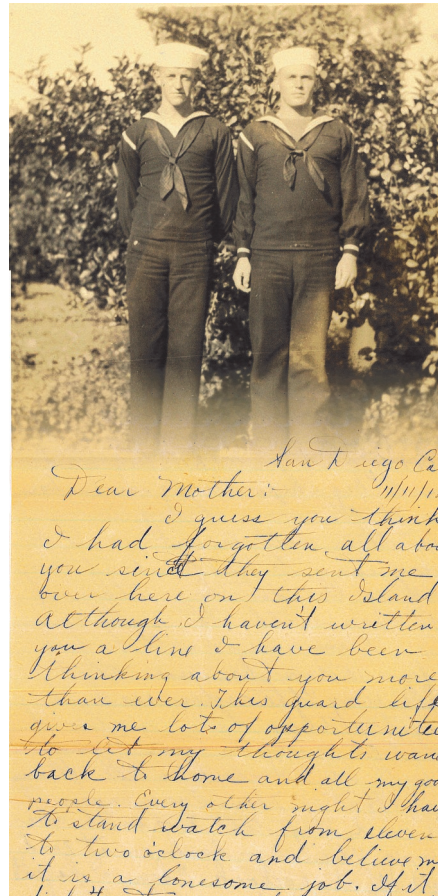 San Diego Ca
Dear Mother:-
11/11/1
I guess you think
I had forgotten all abou
you since they sent me
over here on this Island
although I haven't written
you a line I have been
thinking about you more
than ever. This guard life
gives me lots of opportunitie
to let my thoughts wand
back to home and all my goo
people. Every other night I hav
to stand watch from eleven
to two o'clock and believe m
it is a lonesome job. If it